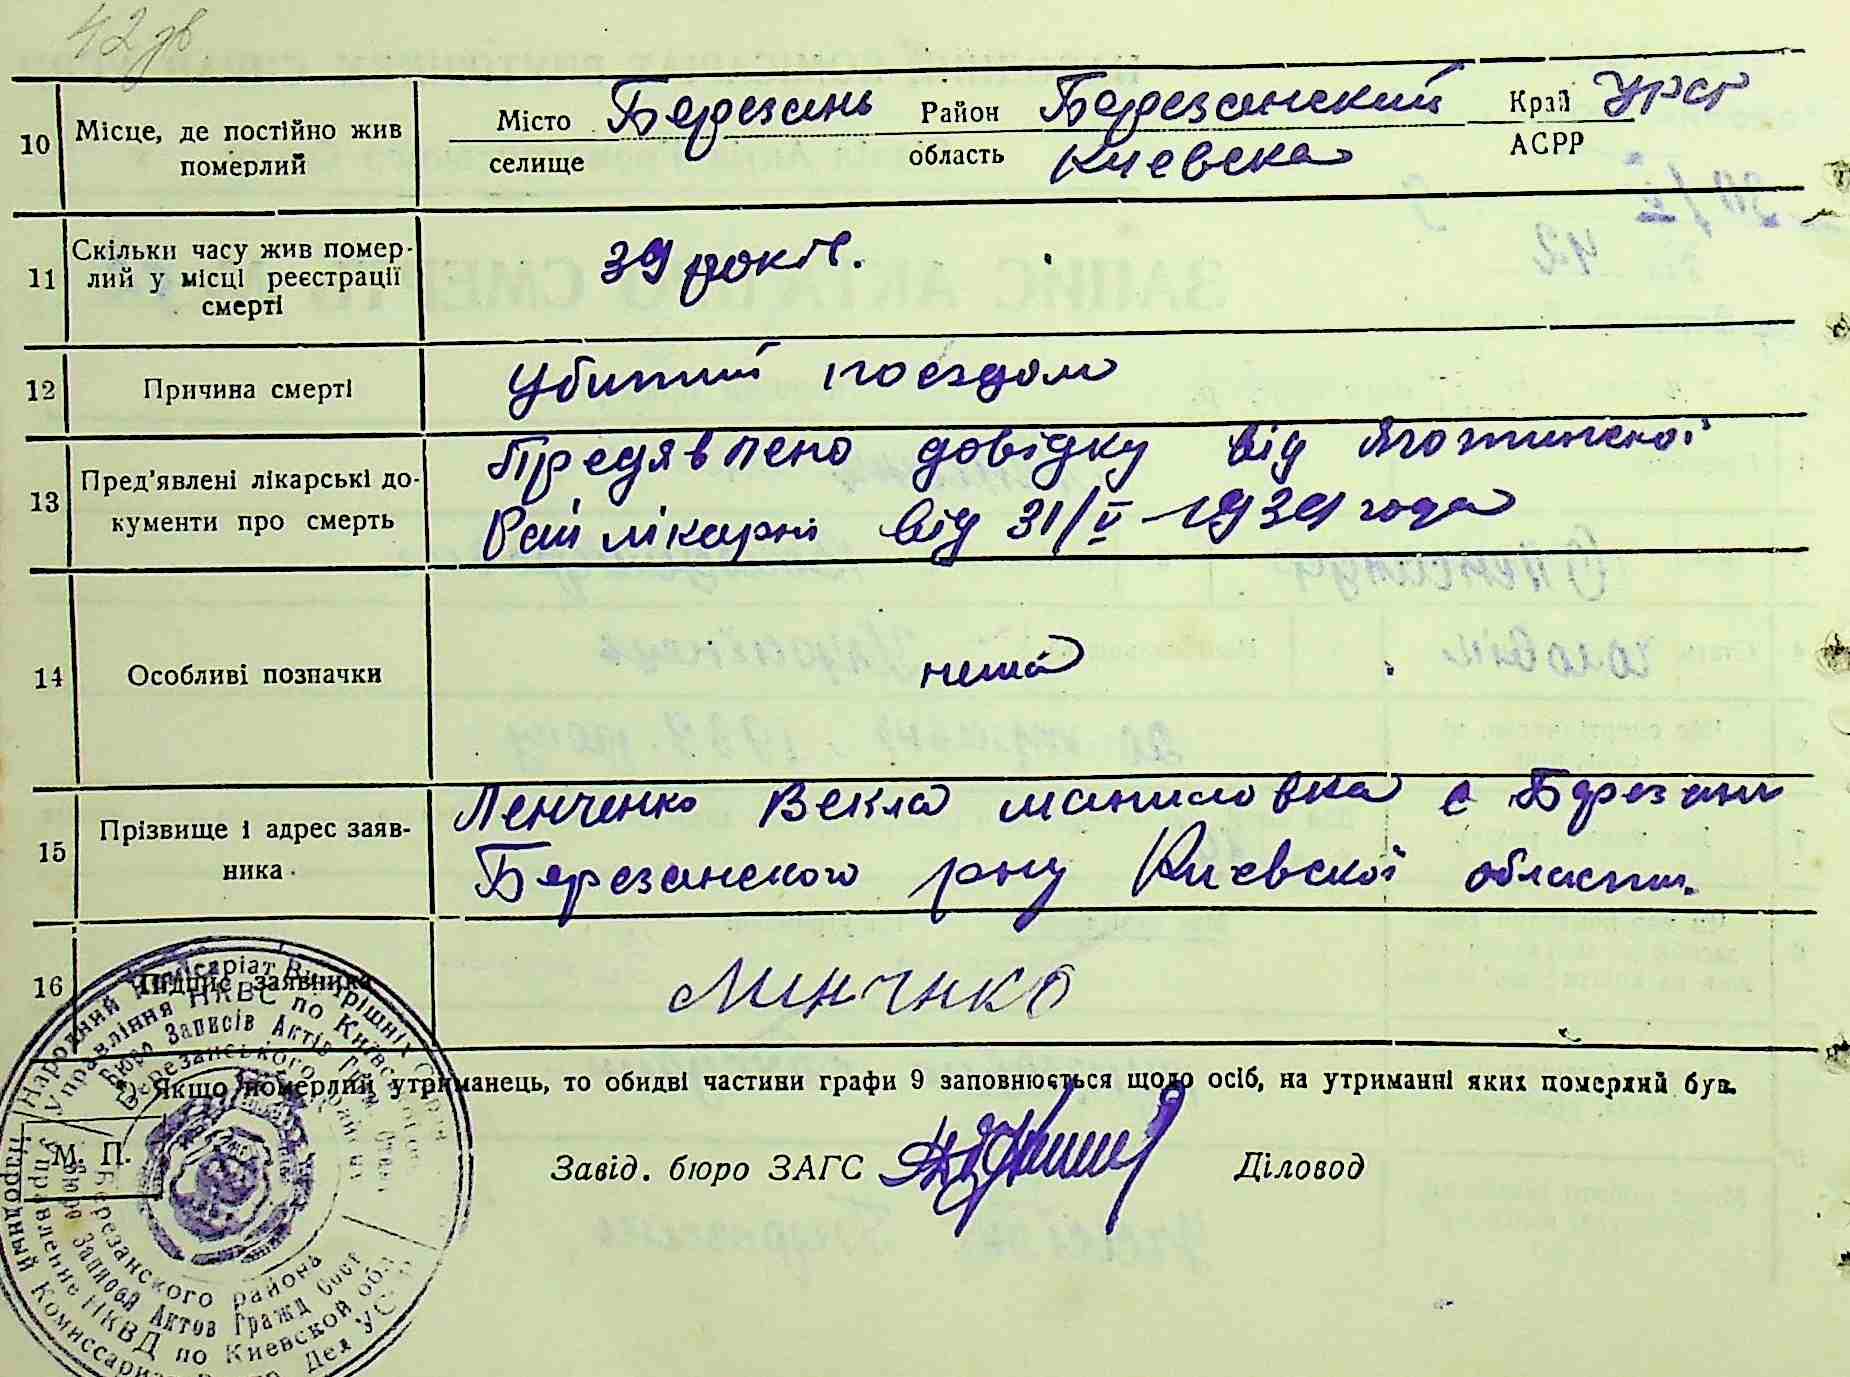 42 зв
10 Місце, де постійно жив померлий
Місто Березань Район Березанский Край УРСР
селище область Киевска АСРР
11 Скільки часу жив помер-
лий у місці реєстрації
смерті
39 років.
12 Причина смерті
Убитий поездом
13 Пред'явлені лікарські до-
кументи про смерть
Предявлено довідку від Яготинскої
Рай лікарні від 31/V-1939 года
14 Особливі позначки
нема
15 Прізвище і адрес заяв-
ника
Ленченко Векла маниловка с Березань
Березанского рну Киевской области.
16 Підпис заявника
Минчнко
Якщо померлий утриманець, то обидві частини графи 9 заповнюється щодо осіб, на утриманні яких померлий був.
М. П.
Завід. бюро ЗАГС
Діловод
Народний Комісаріат Внутрішніх Справ
Управління НКВС по Київській обл
Бюро Записів Актів Гром Стан
Березанського району
Березанского района
Бюро Записей Актов Гражд Сост
Управление НКВД по Киевской обл
Народный Комиссариат Внутр Дел УССР